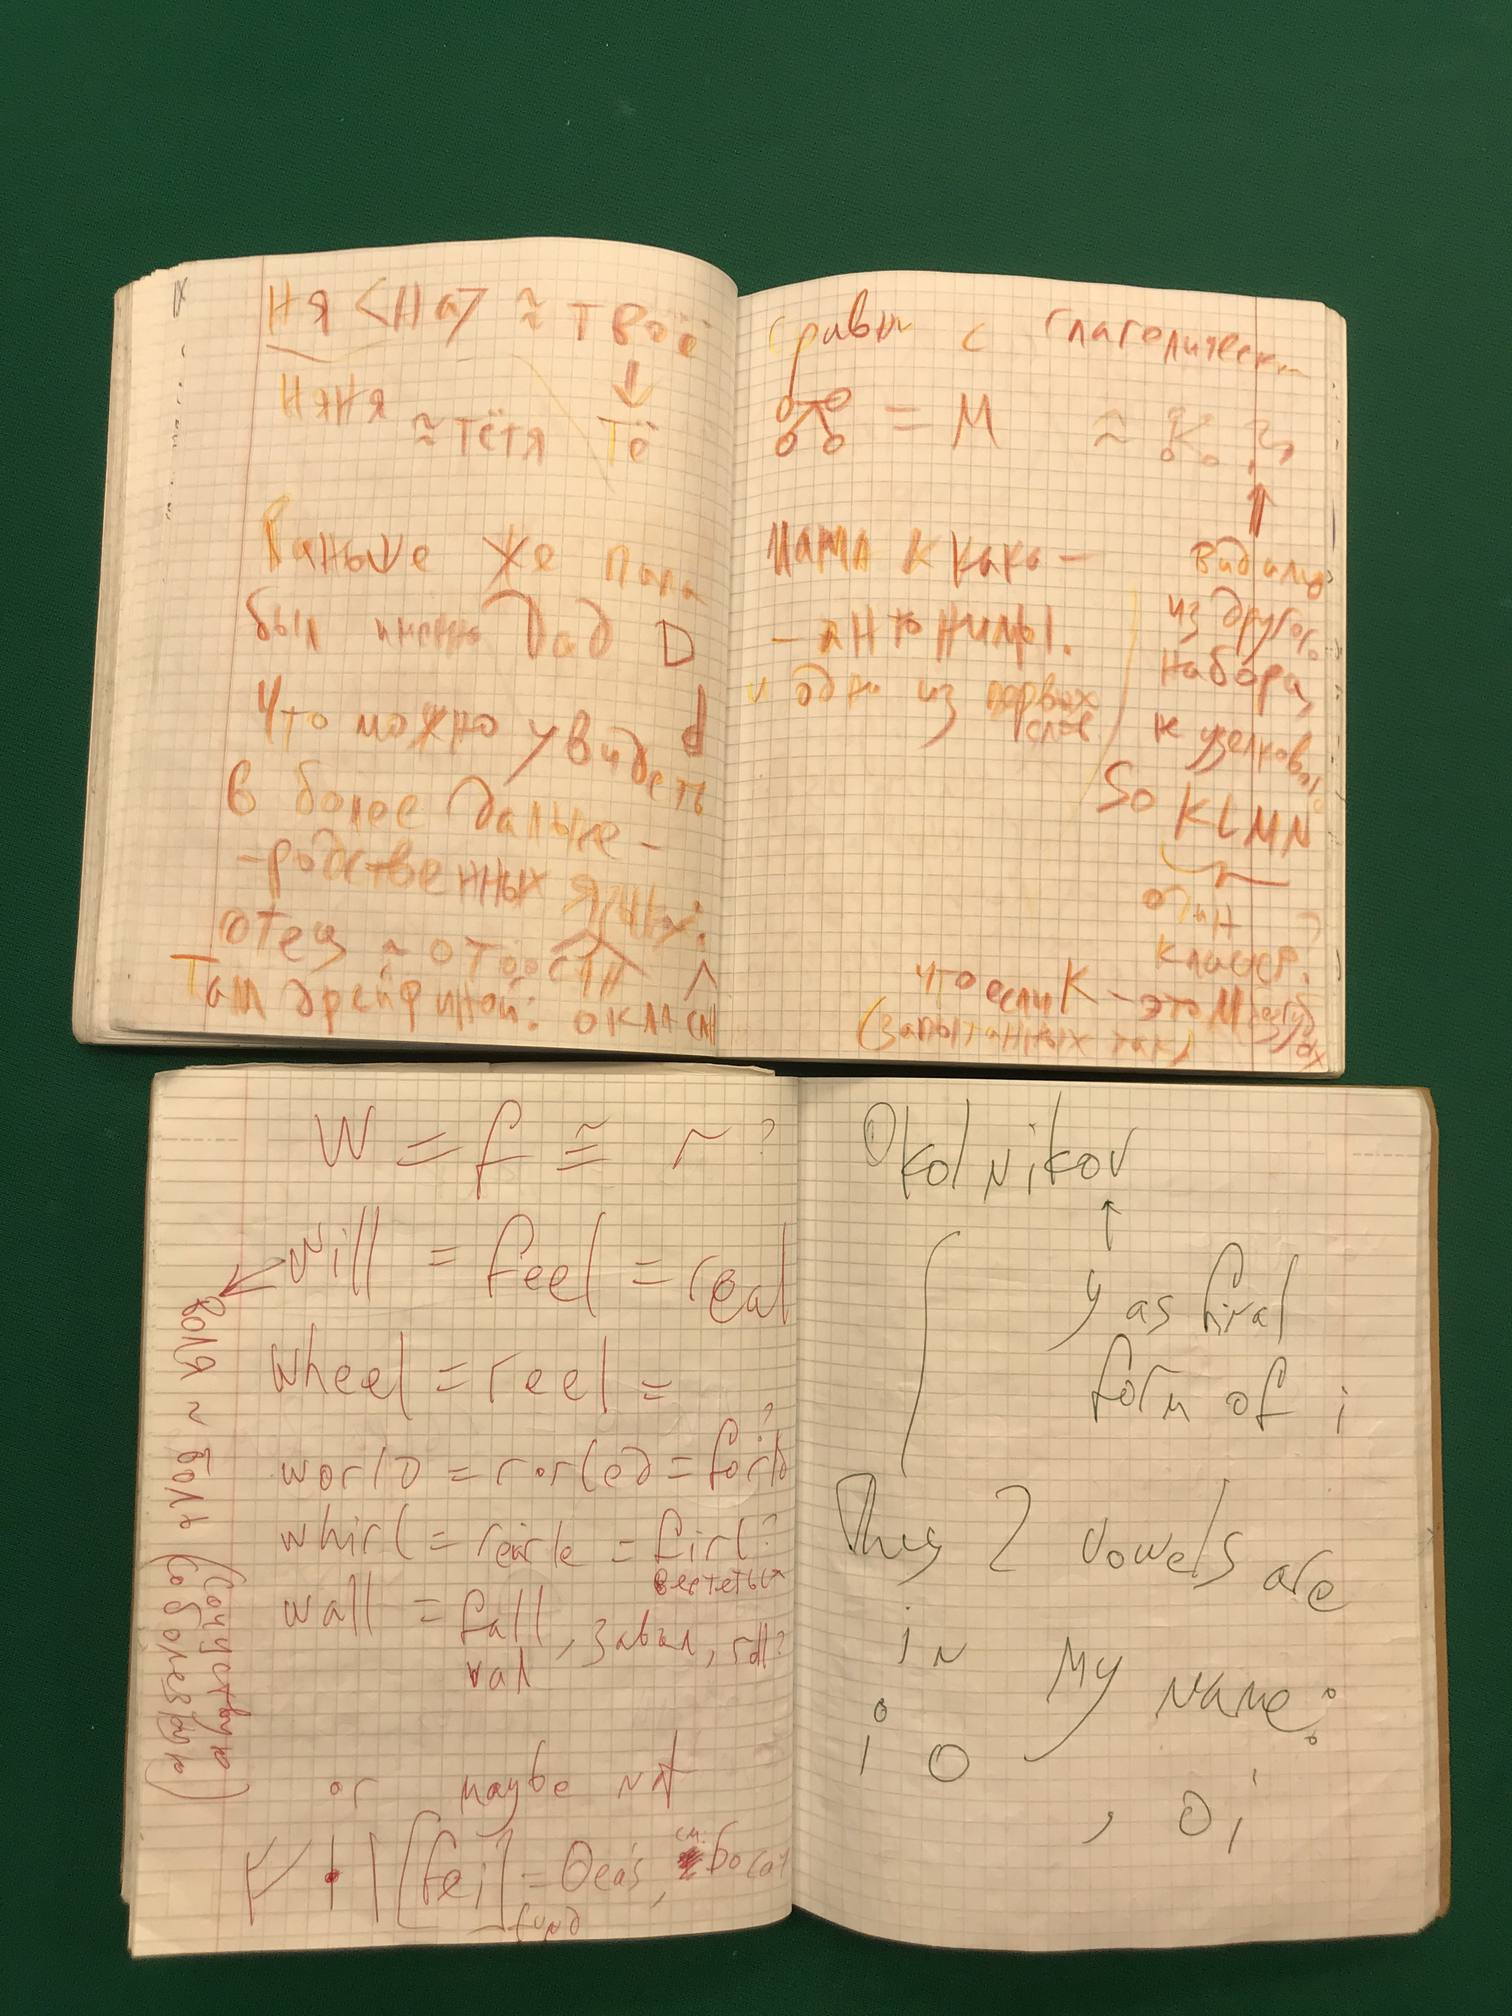 ня <На> ≈ твоё
няня ≈ тётя тё
Раньше же папа
был именно Dad D
что можно увидеть d
в более дальне-
-родственных языках:
отец ≈ от
Там дрейфиной:
сравни с глаголическ
= М ≈
мама и кака -
- антонимы.
и одни из первых
слов
видимо
из другого
набора,
к узелков
So KLMN
один
класс?
что если К - это М
(запытанных так)
W = f ≅ r ?
will = feel = real
wheel = reel =
world = rorled = forld ?
whirl = = firl?
вертеться
wall = fall, завал, roll?
вал
or maybe not
[fei] = Deas, см. богат
fund
воля ~ боля
(сочувствую
соболезную)
Okolnikov
↑
y as final
form of i
Thus 2 vowels are
in my name:
i o , oi